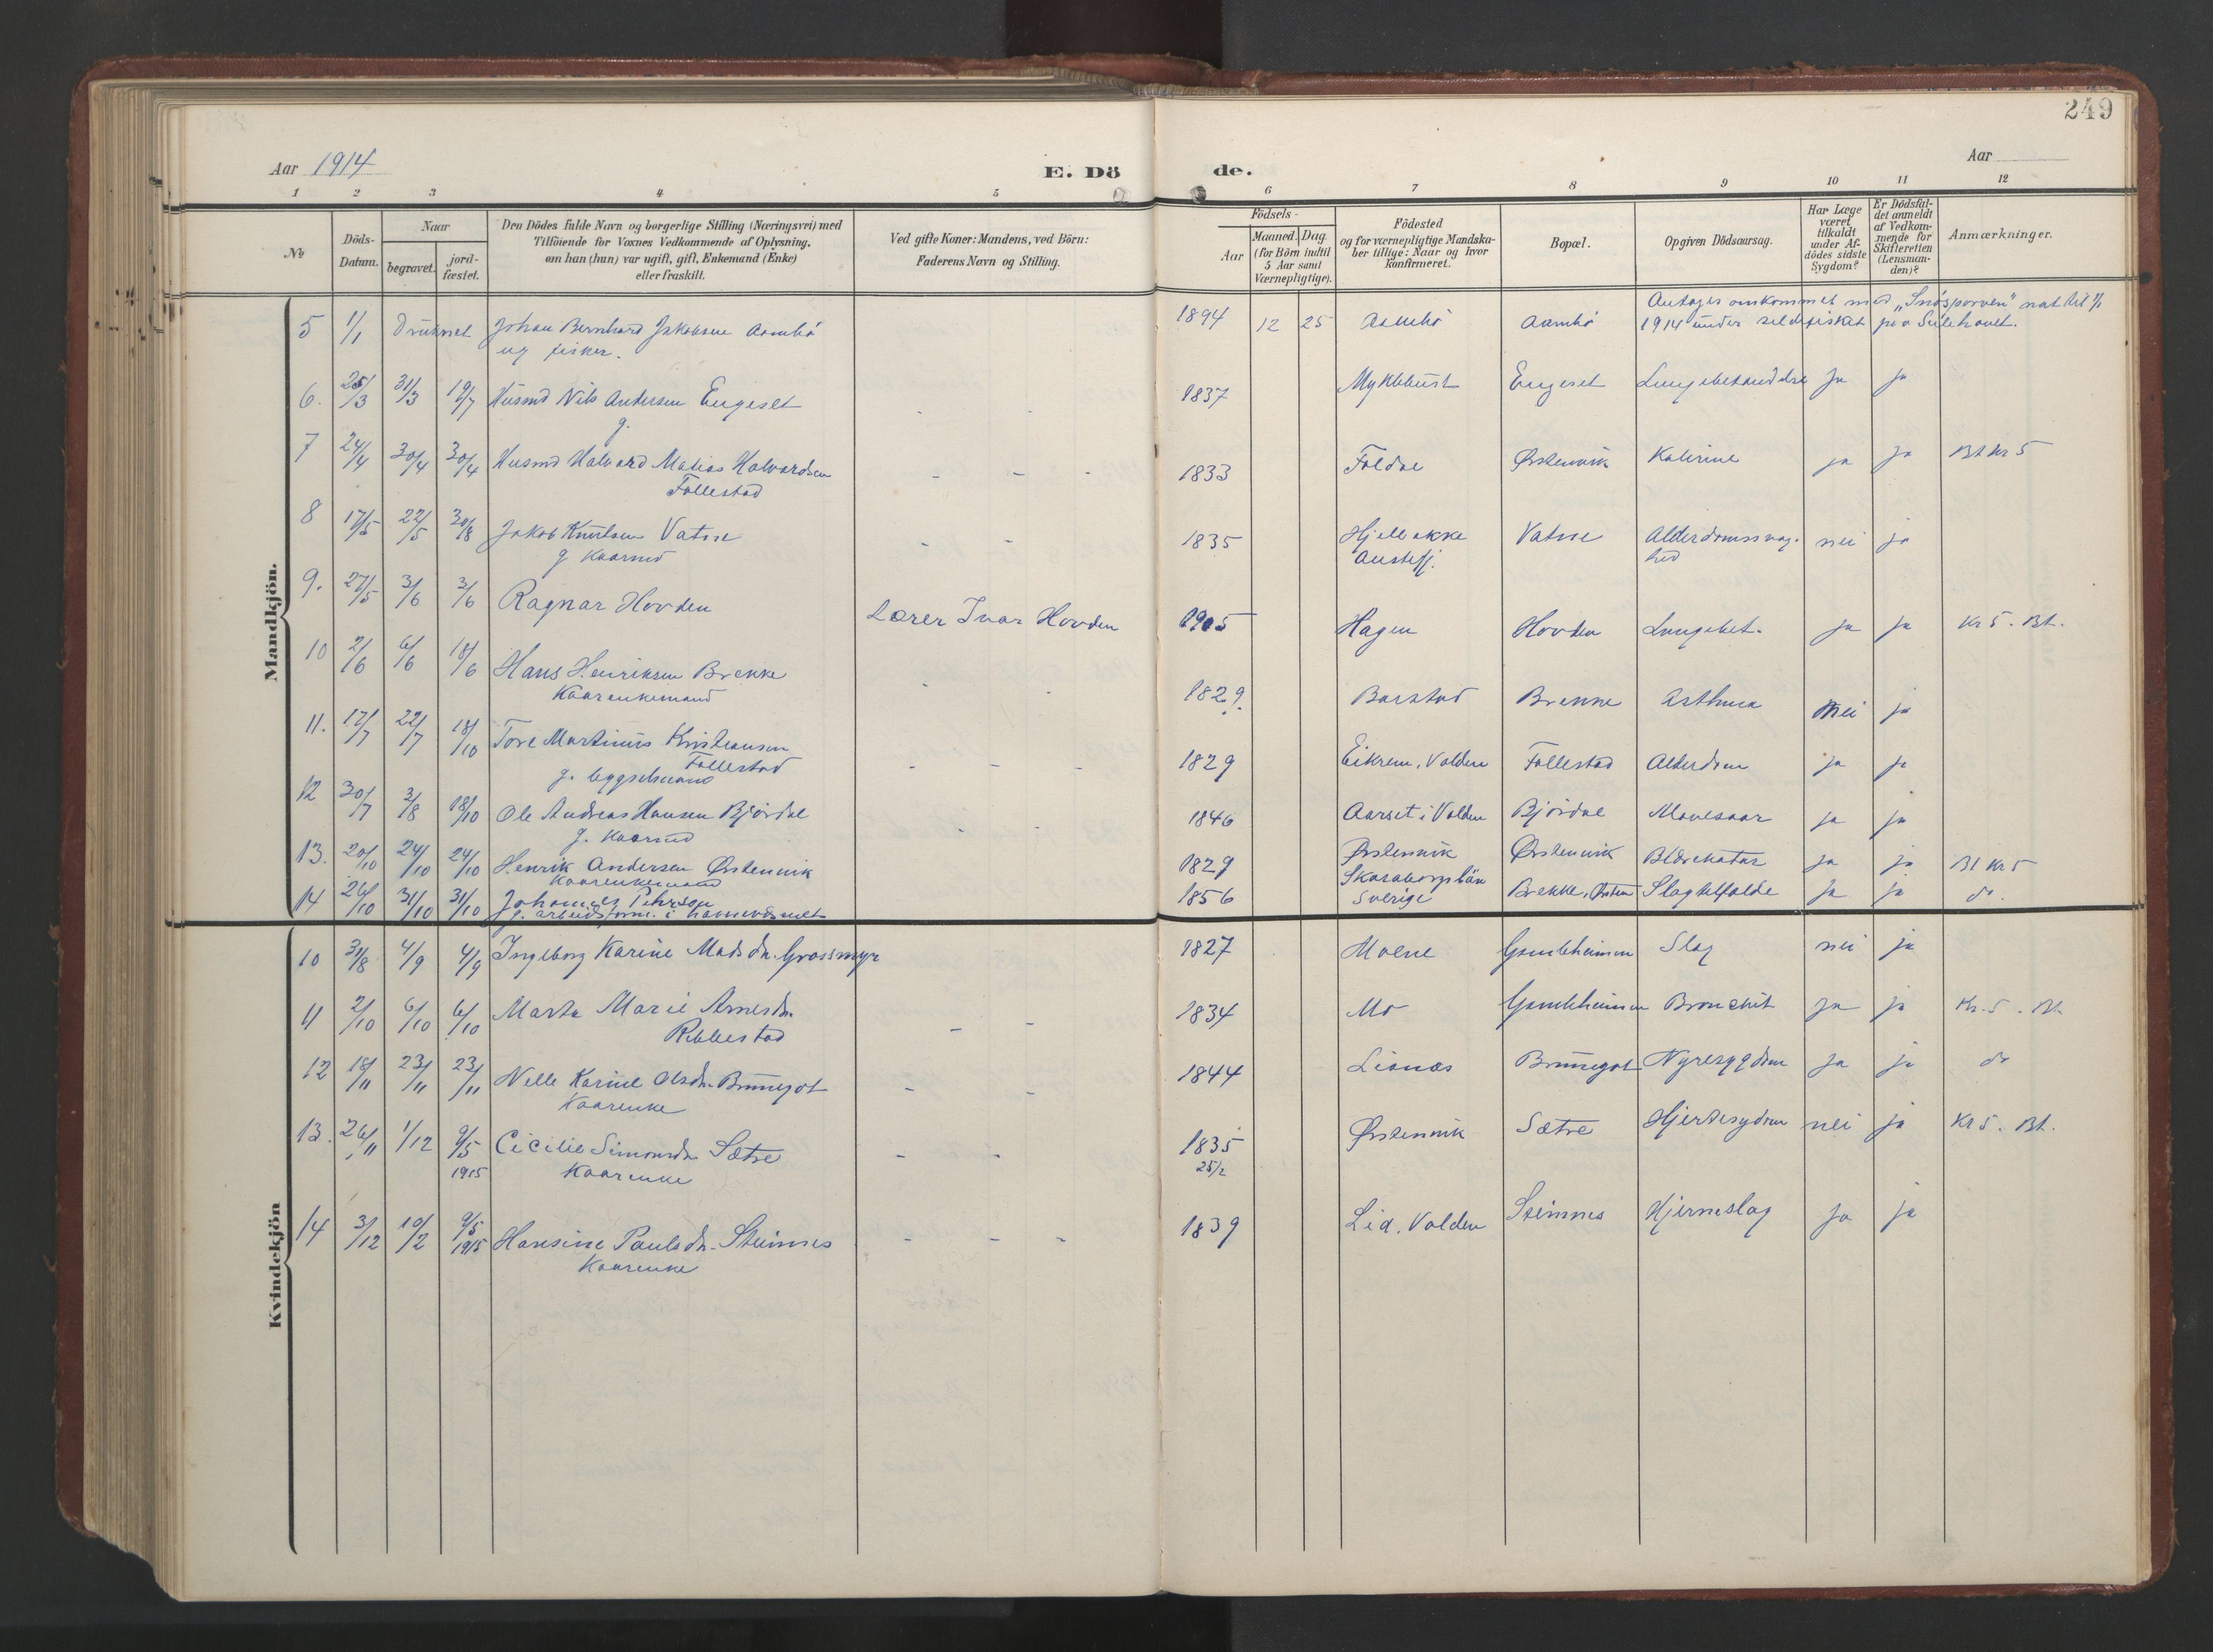 249
Aar 1914
E. Dö de.
Aar
1 2 3 4 5 6 7 8 9 10 11 12
№
Döds-Datum.
Naar
begravet.
jord-fæstet.
Den Dödes fulde Navn og borgerlige Stilling (Næringsvei) med
Tilföiende for Voxnes Vedkommende af Oplysning,
om han (hun) var ugift, gift, Enkemand (Enke)
eller fraskilt.
Ved gifte Koner: Mandens, ved Börn:
Faderens Navn og Stilling.
Födsels-
Aar
Maaned. Dag.
(for Börn indtil
5 Aar samt
Værnepligtige).
Födested
og for værnepligtige Mandska-
ber tillige: Naar og hvor
konfirmeret.
Bopæl.
Opgiven Dödsaarsag.
Har Læge
været
tilkaldt
under Af-
dödes sidste
Sygdom?
Er Dödsfal-
det anmeldt
af Vedkom-
mende for
Skifteretten
(Lensman-
den)?
Anmærkninger.
Mandkjön.
5 1/1 Druknet Johan Bernhard Jakobsen Aambö 1894 12 25 Aambö Aambö Antages omkommet med „Snøsporven" nat til 1/1
ug fisker. 1914 under sildefisket paa Sulehavet.
6. 25/3 31/3 19/7 Husmd Nils Andersen Engeset - - 1837 Myklebust Engeset Lungebetændelse Ja ja
g.
7 24/4 30/4 30/4 Husmd Halvard Matias Halvardsen - - - 1833 Foldal Østenvik Katirine ja ja Bt Kr 5
Follestad
8 17/5 22/5 30/8 Jakob Knutsen Vatne - - 1835 Hjellbakke Vatne Alderdomssvag- nei ja
g Kaarmd Austefj. hed
9. 27/5 3/6 3/6 Ragnar Hovden Lærer Ivar Hovden 1905 Hagen Hovden Lungebet. ja ja Kr 5. Bt.
10 2/6 6/6 18/6 Hans Henriksen Brekke - - 1829. Barstad Brekke Asthma nei ja
Kaarenkemand
11. 17/7 22/7 18/10 Tore Martinus Kristiansen - - - 1829 Eikrem, Volden Follestad Alderdom ja ja
Follestad
g. byggselmand
12 30/7 3/8 18/10 Ole Andreas Hansen Björdal - - 1846 Aarset i Volden Björdal Mavesaar ja ja
g. Kaarmd
13. 20/10 24/10 24/10 Henrik Andersen Østenvik 1829 Østenvik Østenvik Blærekatar ja ja Bt Kr 5
Kaarenkemand
14 26/10 31/10 31/10 Johannes Pehrson 1856 Skaraborgs län Sverige Brekke, Østen Slagtilfælde Ja ja do.
g. arbeidsform. i havnevæsnet
Kvindekjön
10 31/8 4/9 4/9 Ingeborg Karine Madsdr. Grøssmyr 1827 Moene Gamleheimen Slag nei ja
11 2/10 6/10 6/10 Marte Marie Arnesdr. - - 1834 Mo Gamleheimen Bronchit ja ja Kr. 5. Bt.
Ribbestad
12 18/11 23/11 23/11 Nelle Karine Olsdr. Brunegot - - 1844 Lianes Brunegot Nyresygdom Ja ja do
Kaarenke
13. 26/11 1/12 9/5 Cicilie Simonsdr Sætre - - 1835 Østenvik Sætre Hjertesygdom nei ja Kr 5. Bt.
1915 Kaarenke 25/2
14 3/12 10/2 9/5 1915 Hansine Paulsdr. Steinnes - - - 1839 Lid, Volden Steinnes Hjerneslag Ja ja
Kaarenke